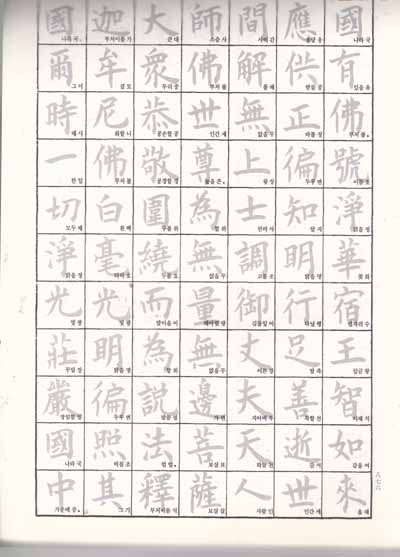 國有佛號淨華宿王智如來
나라 국 있을 유 부처 불 이름 호 맑을 정 꽃 화 별자리 수 임금 왕 지혜 지 같을 여 올 래
應供正徧知明行足善逝世
바를 정 두루 변 알 지 밝을 명 다닐 행 발 족 착할 선 갈 서 인간 세
間解無上士調御丈夫天人
사이 간 풀 해 없을 무 윗 상 선비 사 고를 조 길들일 어 어른 장 지아비 부 하늘 천 사람 인
師佛世尊為無量無邊菩薩
스승 사 부처 불 인간 세 높을 존 할 위 없을 무 헤아릴 량 없을 무 가 변 보살 보 보살 살
大眾恭敬圍繞而為說法釋
큰 대 무리 중 공손할 공 공경할 경 두를 위 두를 요 말이을 이 할 위 말씀 설 법 법 부처이름 석
迦牟尼佛白毫光明徧照其
부처이름 가 화할 니 부처 불 흰 백 터럭 호 빛 광 밝을 명 두루 변 비칠 조 그 기
國爾時一切淨光莊嚴國中
나라 국 그 이 때 시 한 일 모두 체 맑을 정 빛 광 꾸밀 장 장엄할 엄 나라 국 가운데 중
八七六